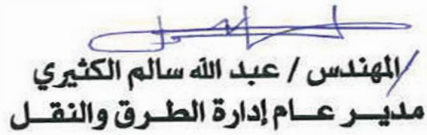 المهندس / عبد الله سالم الكثيري
مديــر عــام إدارة الطــرق والنقــل